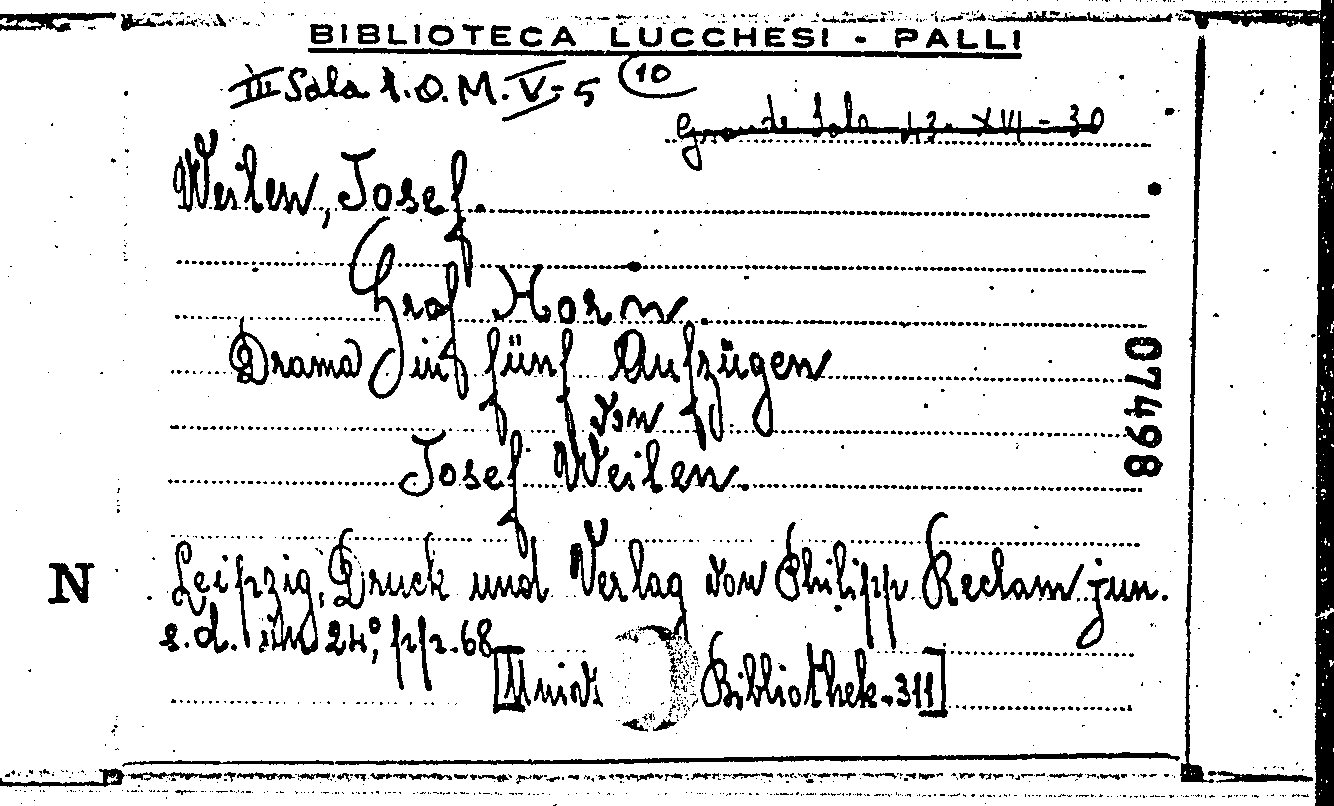 BIBLIOTECA LUCCHESI - PALLI
III Sala 1.O.M.V-5 (10
Grande Sala 43- XVI - 30
Weilen, Josef.
Graf Horn.
Drama in fünf Aufzügen
von
Josef Weilen.
07498
N
Leipzig, Druck und Verlag von Philipp Reclam jun.
s.d. in 24º, pp. 68
[Univ. Bibliothek-311]